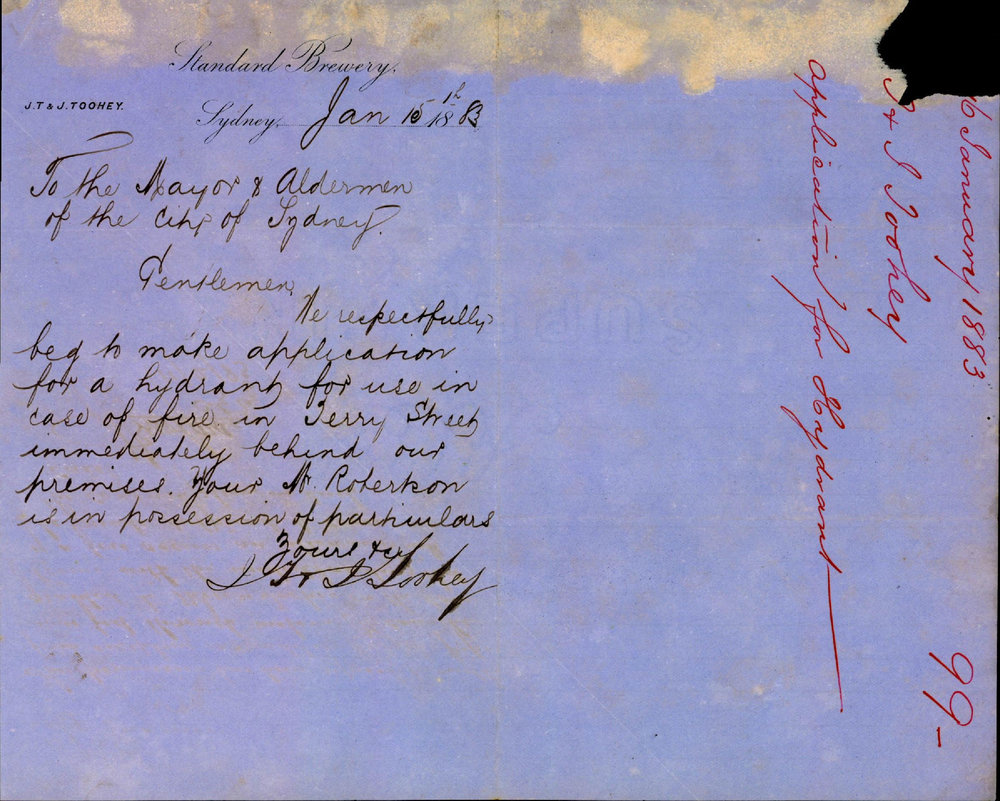 Standard Brewery.
J.T & J. TOOHEY.
Sydney, Jan 15th 1883
To the Mayor & Aldermen
of the City of Sydney.
Gentlemen,
We respectfully
beg to make application
for a hydrant for use in
case of fire in Terry Street
immediately behind our
premises. Your Mr Robertson
is in possession of particulars
Yours &c
J T & J Toohey
6 January 1883
T & J Toohey
application for Hydrant—
99-